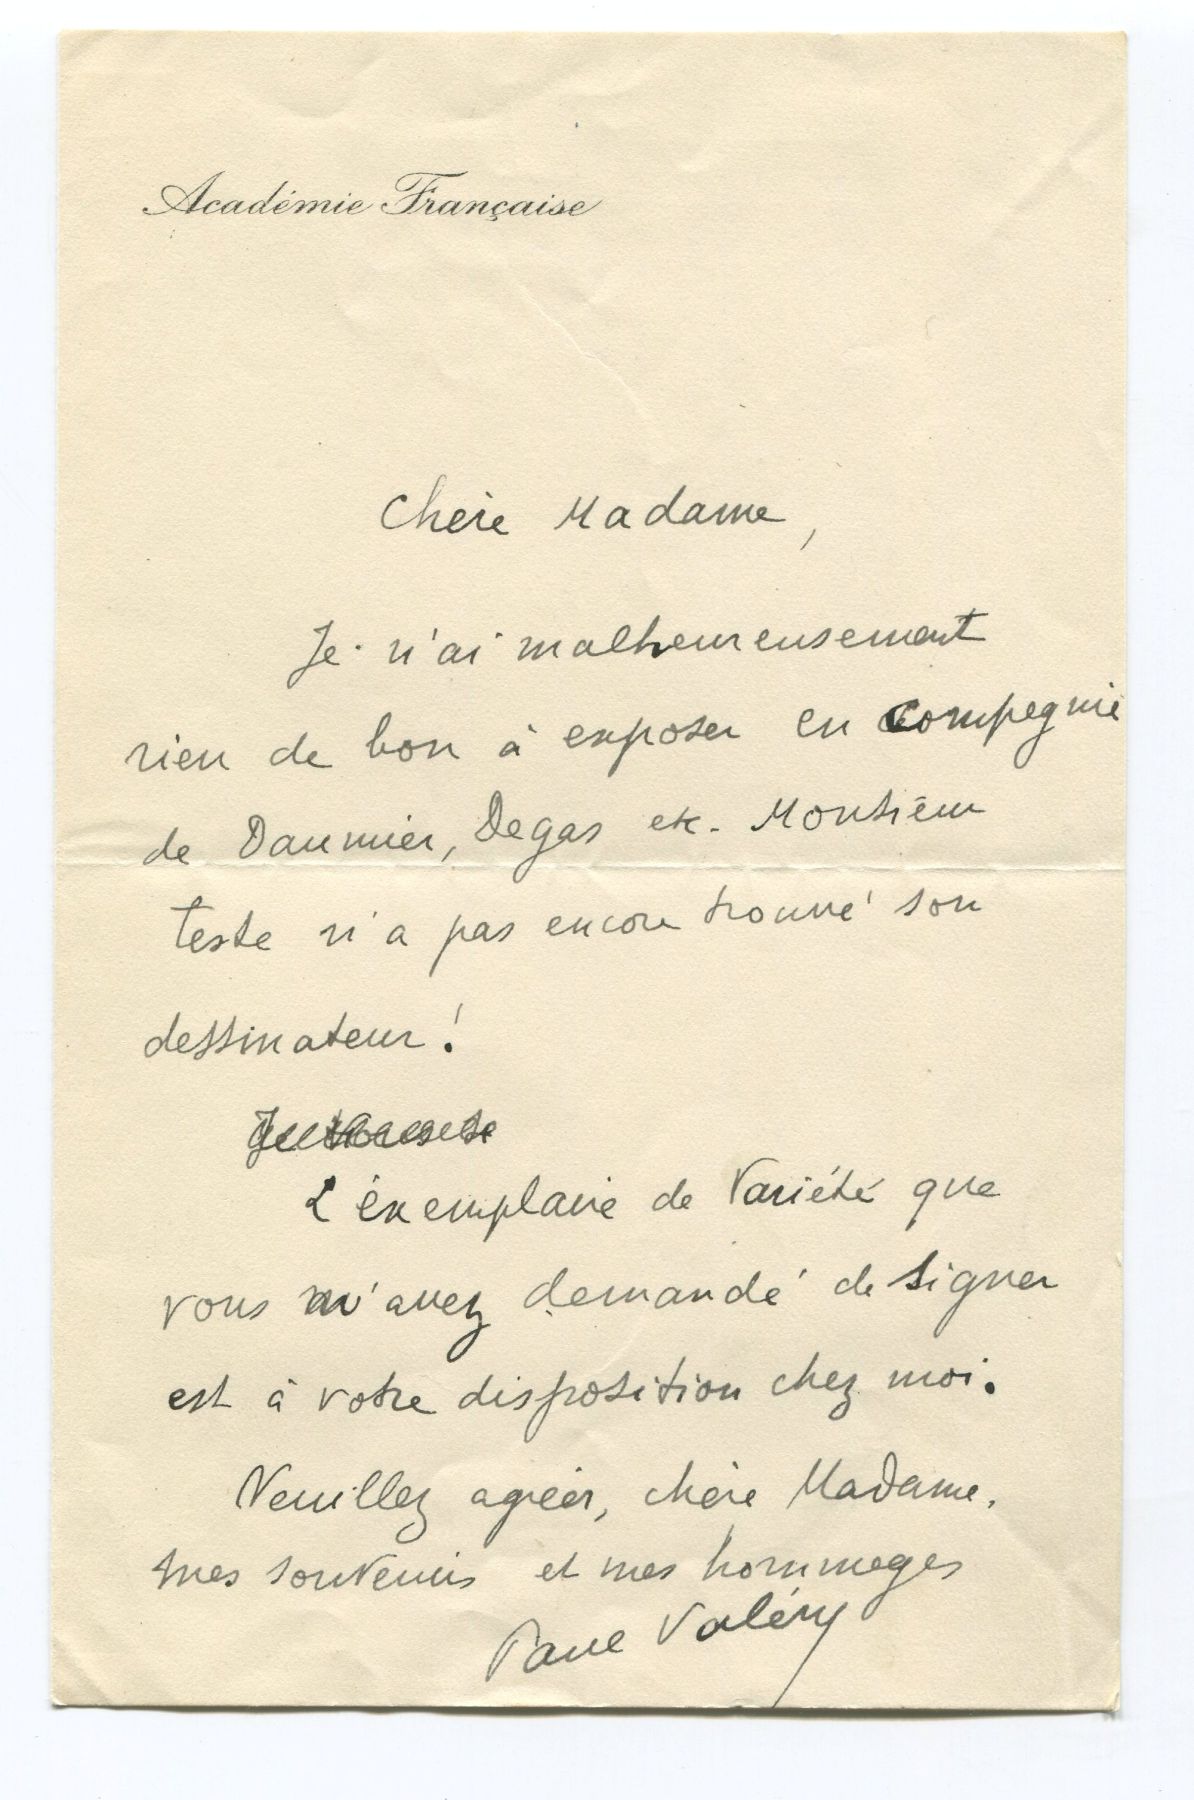 Académie Française
Chère Madame,
Je n'ai malheureusement
rien de bon à exposer en compagnie
de Daumier, Degas etc. Monsieur
Teste n'a pas encore trouvé son
dessinateur !
L'exemplaire de Variété que
vous m'avez demandé de signer
est à votre disposition chez moi.
Veuillez agréer, chère Madame,
mes souvenirs et mes hommages
Paul Valéry